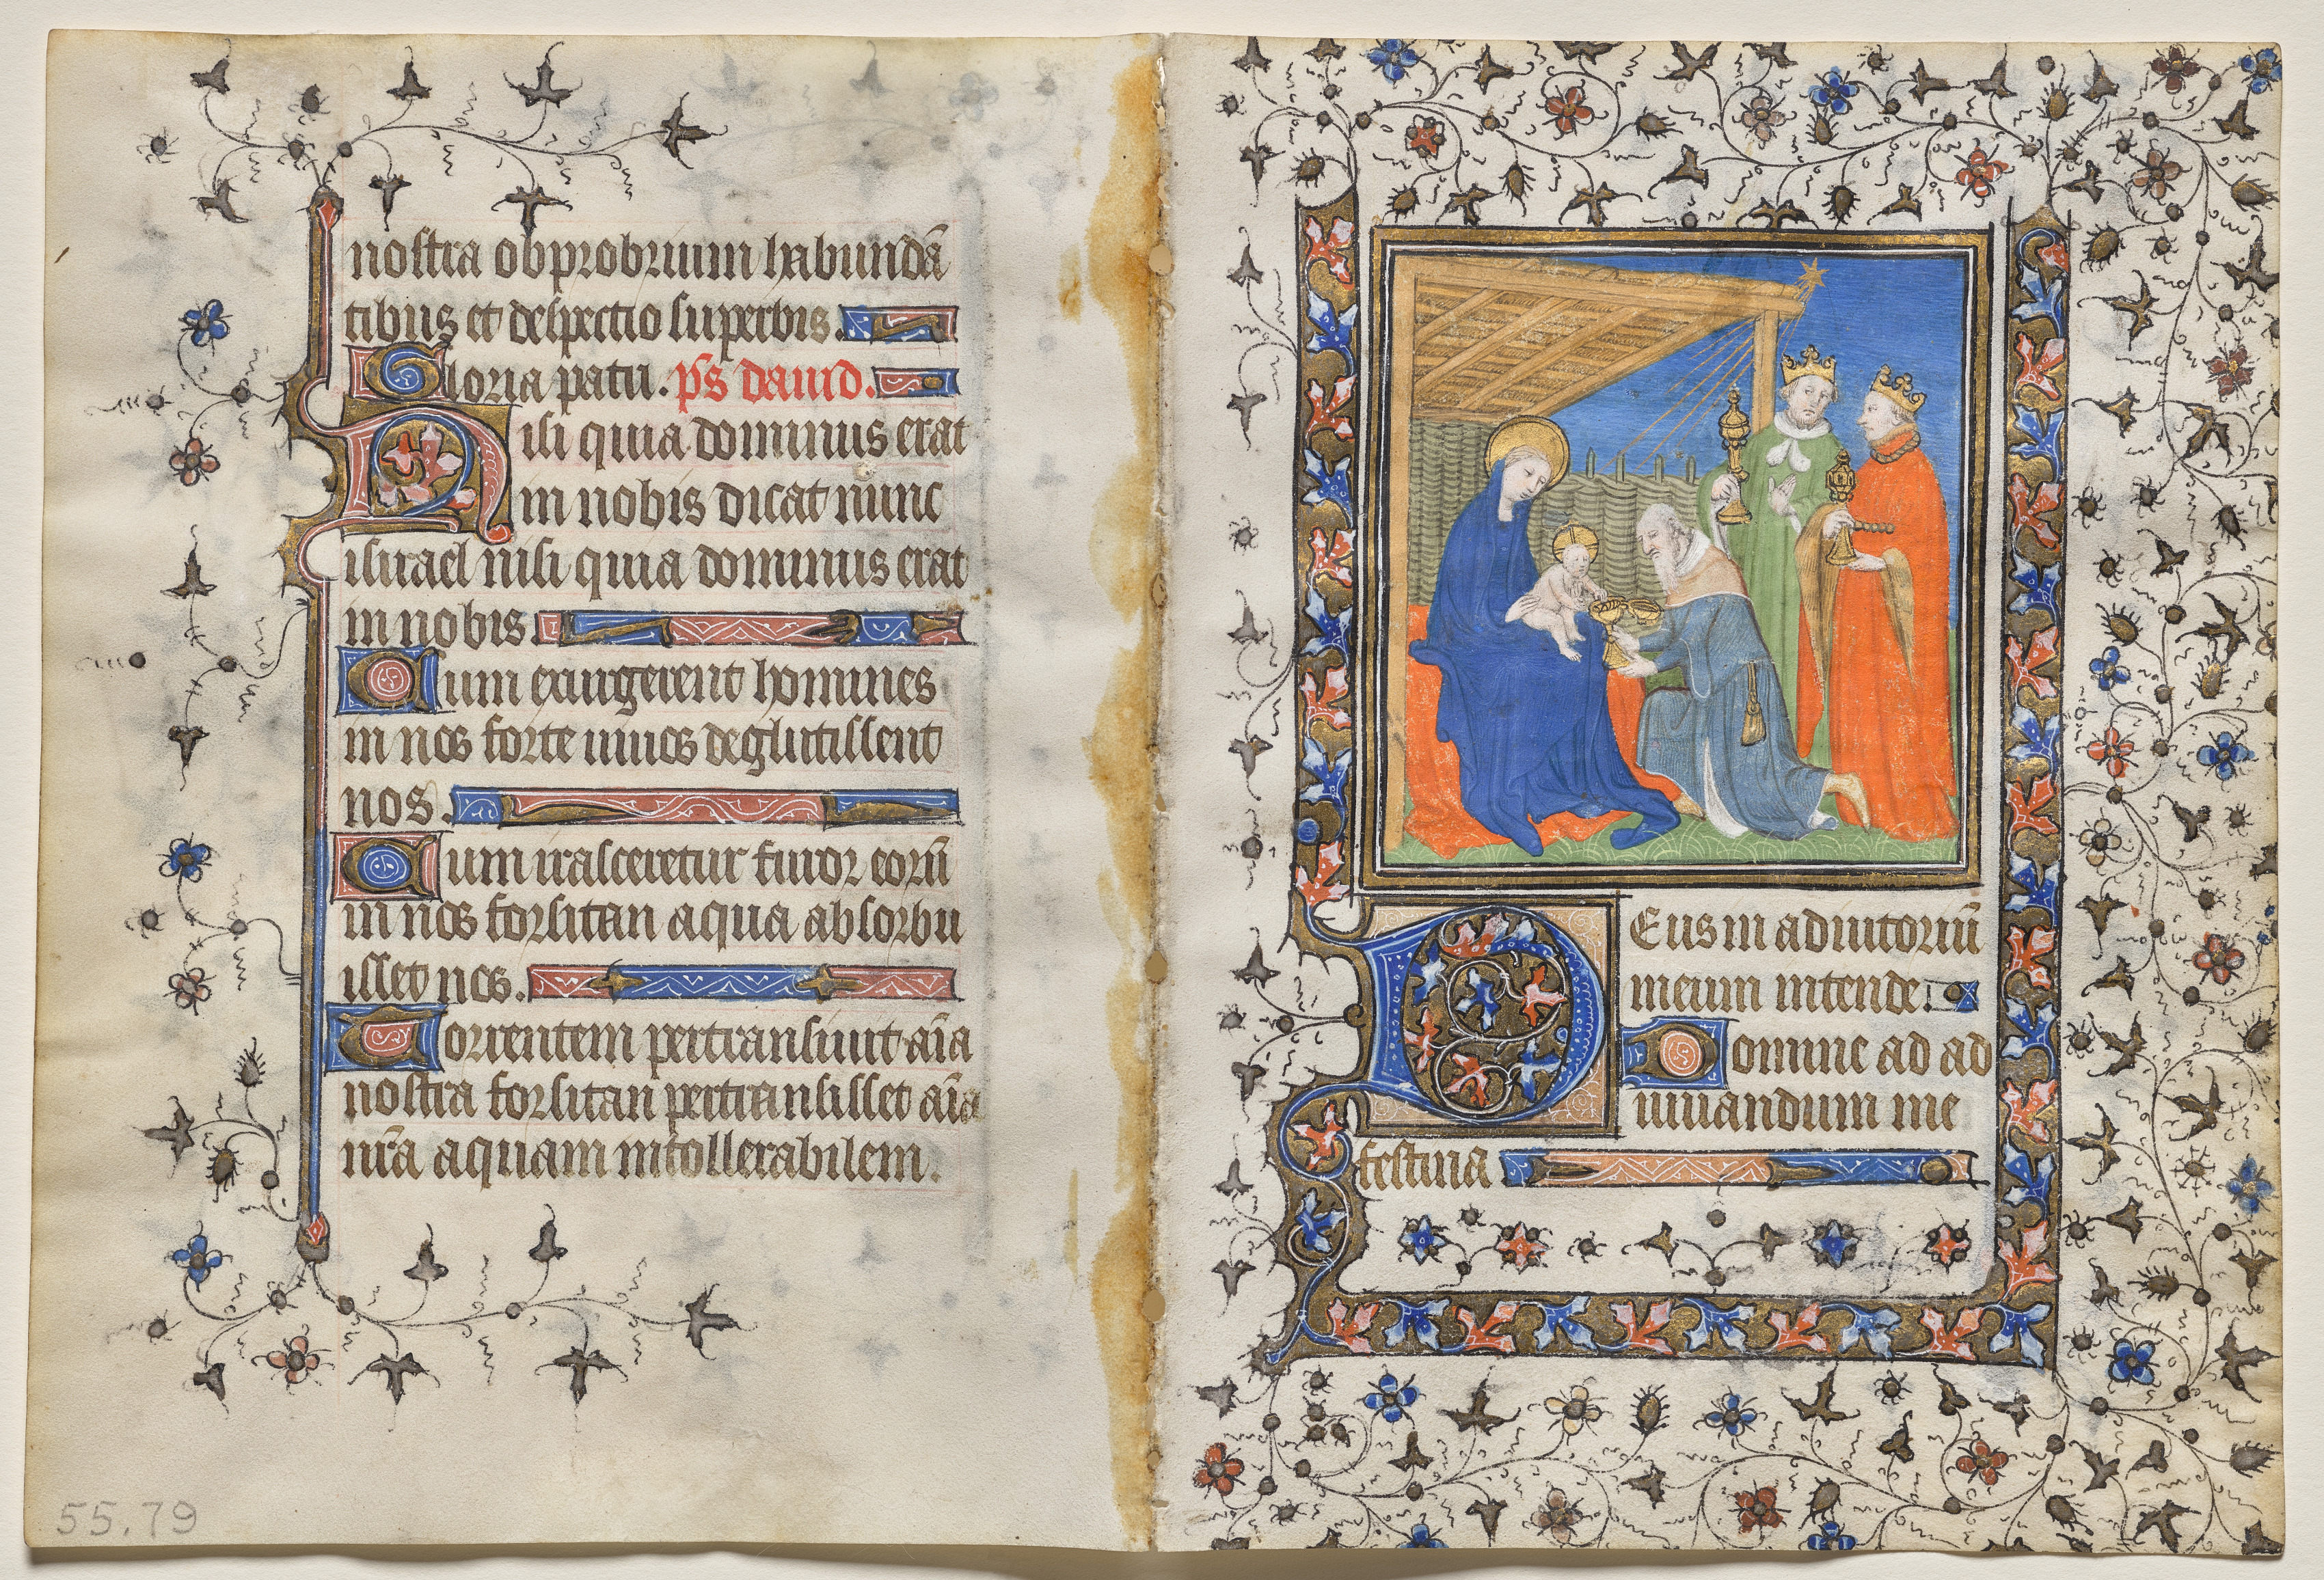 nostra obprobrium habundā
tibus et despectio superbis.
Gloria patri. ps̄ dauid.
Nisi quia dominus erat
in nobis dicat nunc
israel nisi quia dominus erat
in nobis
Cum exurgerent homines
in nos forte uiuos deglutissent
nos.
Cum irasceretur furor eorū
in nos forsitan aqua absorbu
isset nos.
Torrentem pertransiuit aīa
nostra forsitan pertransisset aīa
nr̄a aquam intollerabilem.
55.79
DEus in adiutoriū
meum intende.
Domine ad ad
iuuandum me
festina